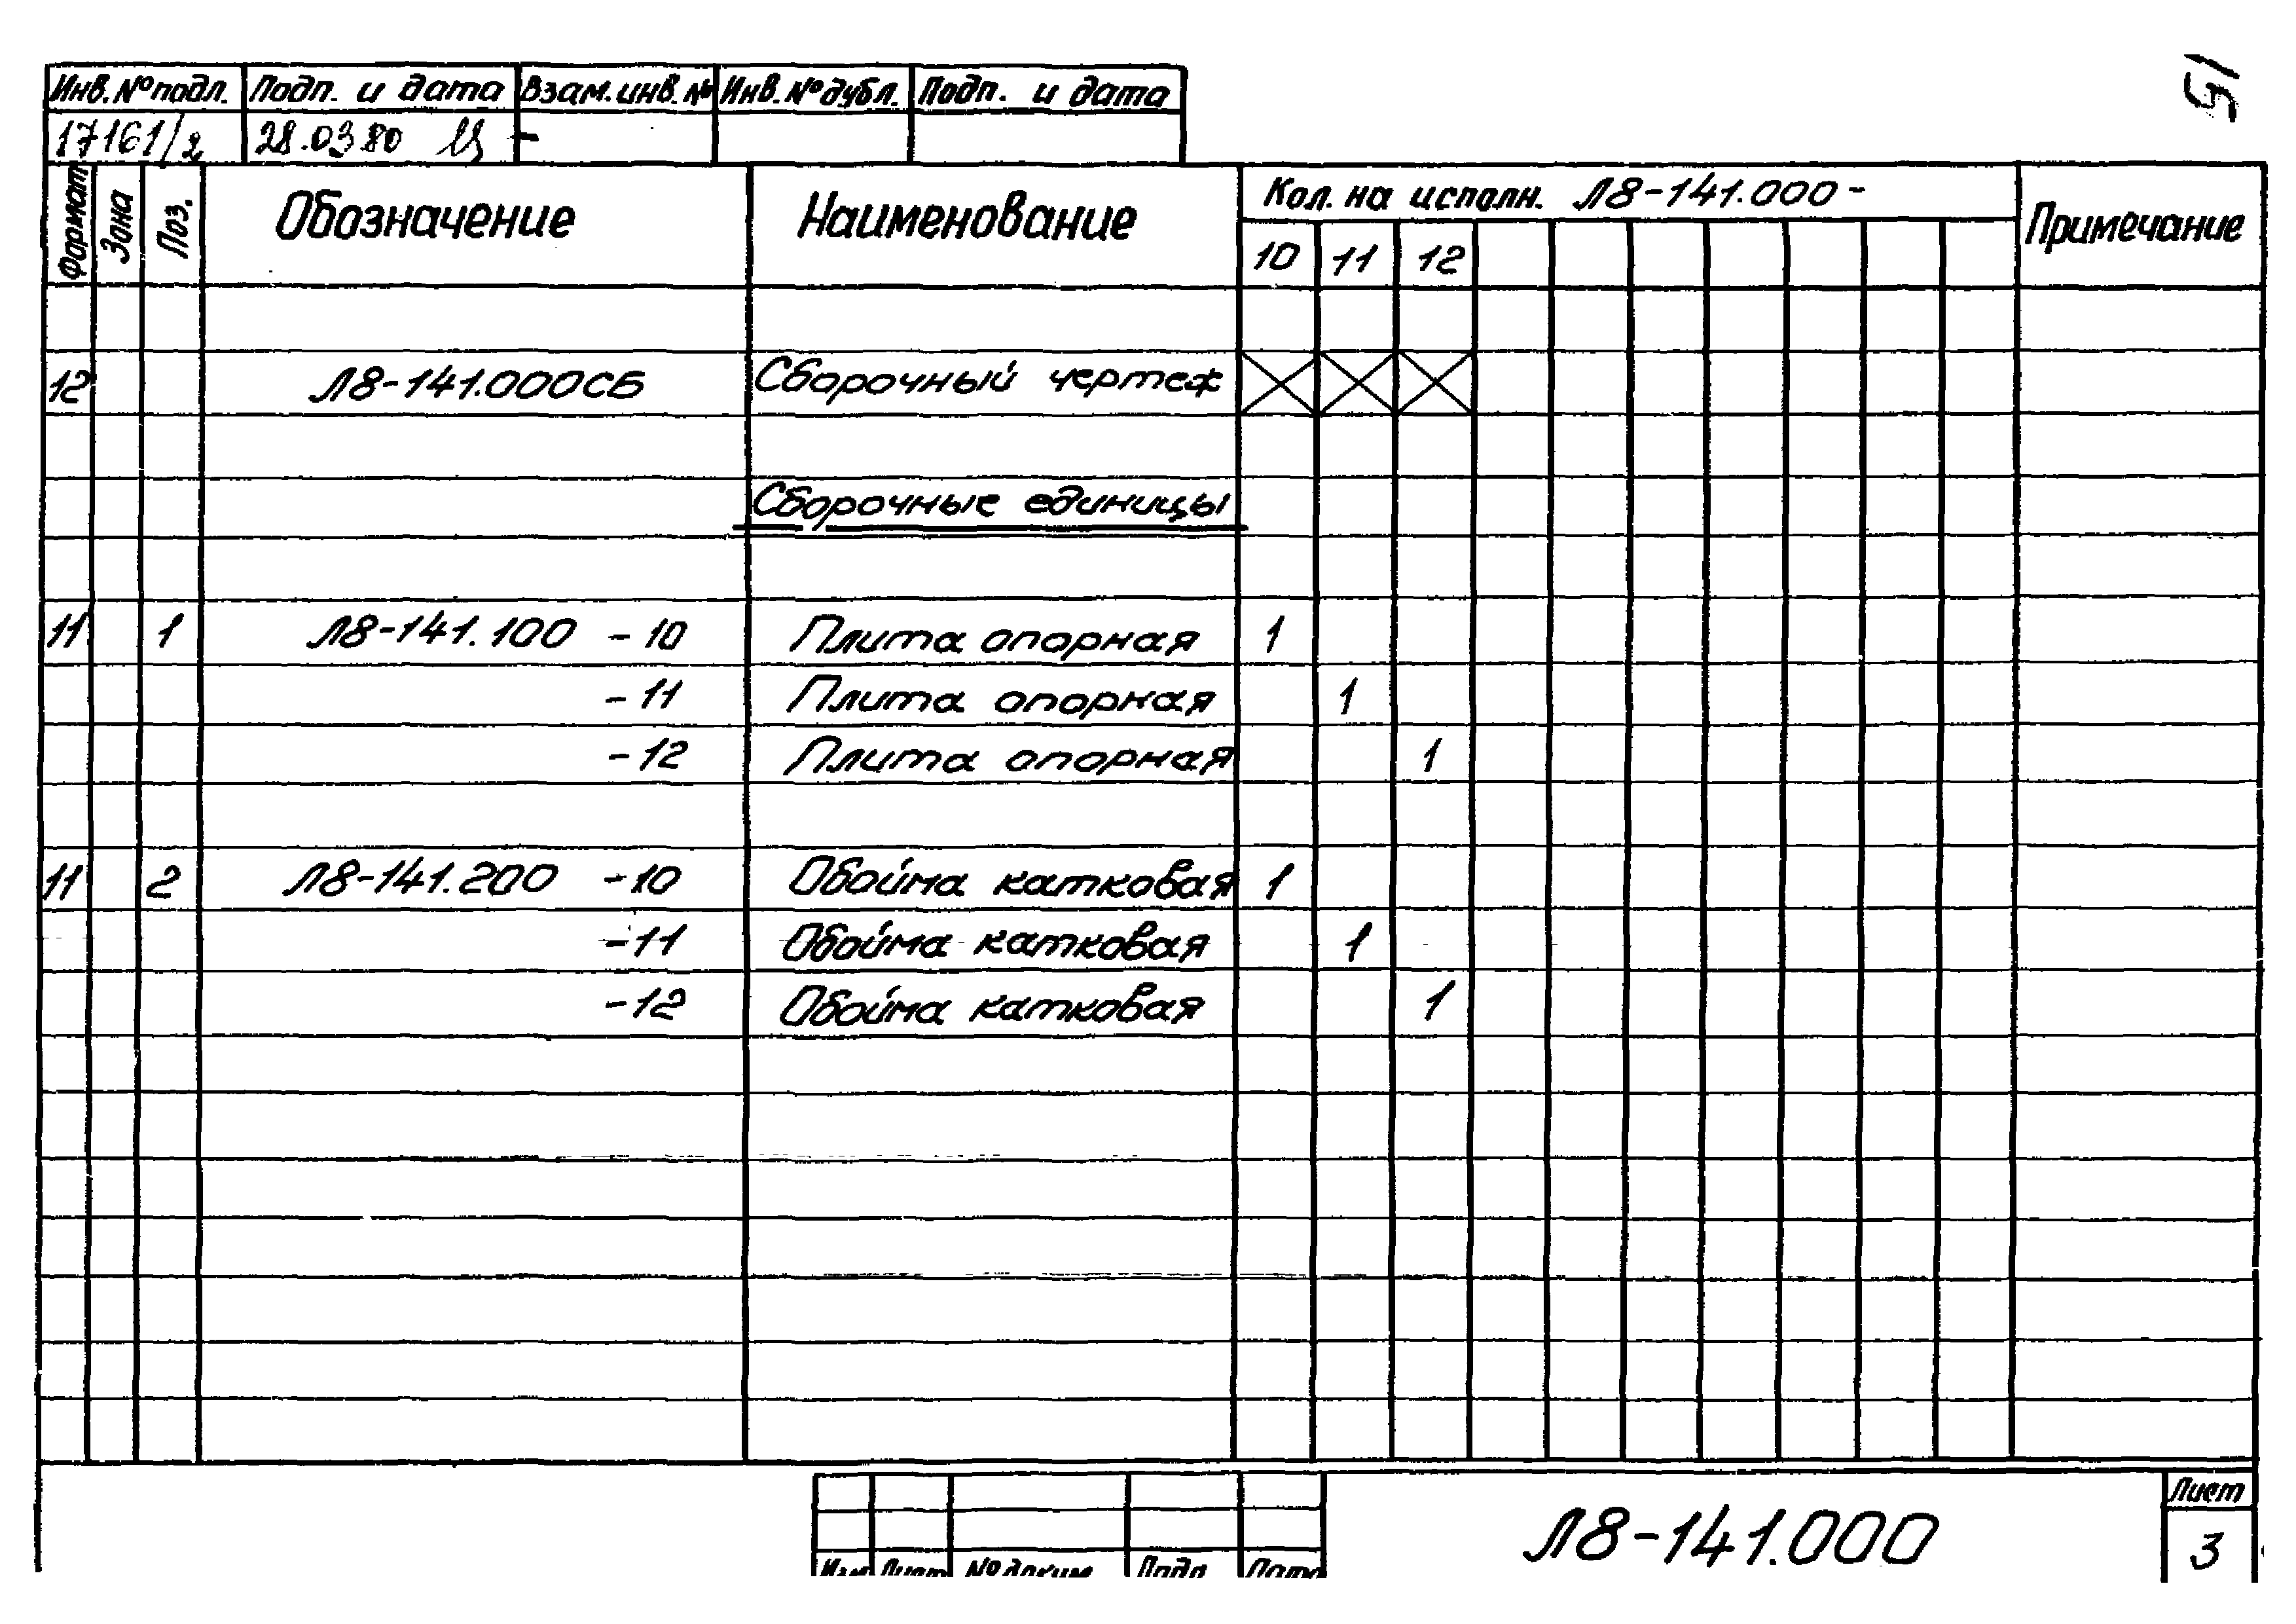 15
Инв. № подл. Подп. и дата Взам. инв. № Инв. № дубл. Подп. и дата
17161/2 28.03.80 –
Формат Зона Поз. Обозначение Наименование Кол. на исполн. Л8-141.000- Примечание
10 11 12
12 Л8-141.000СБ Сборочный чертеж
Сборочные единицы
11 1 Л8-141.100 -10 Плита опорная 1
-11 Плита опорная 1
-12 Плита опорная 1
11 2 Л8-141.200 -10 Обойма катковая 1
-11 Обойма катковая 1
-12 Обойма катковая 1
Лист
Л8-141.000 3
Изм Лист № докум. Подп. Дата